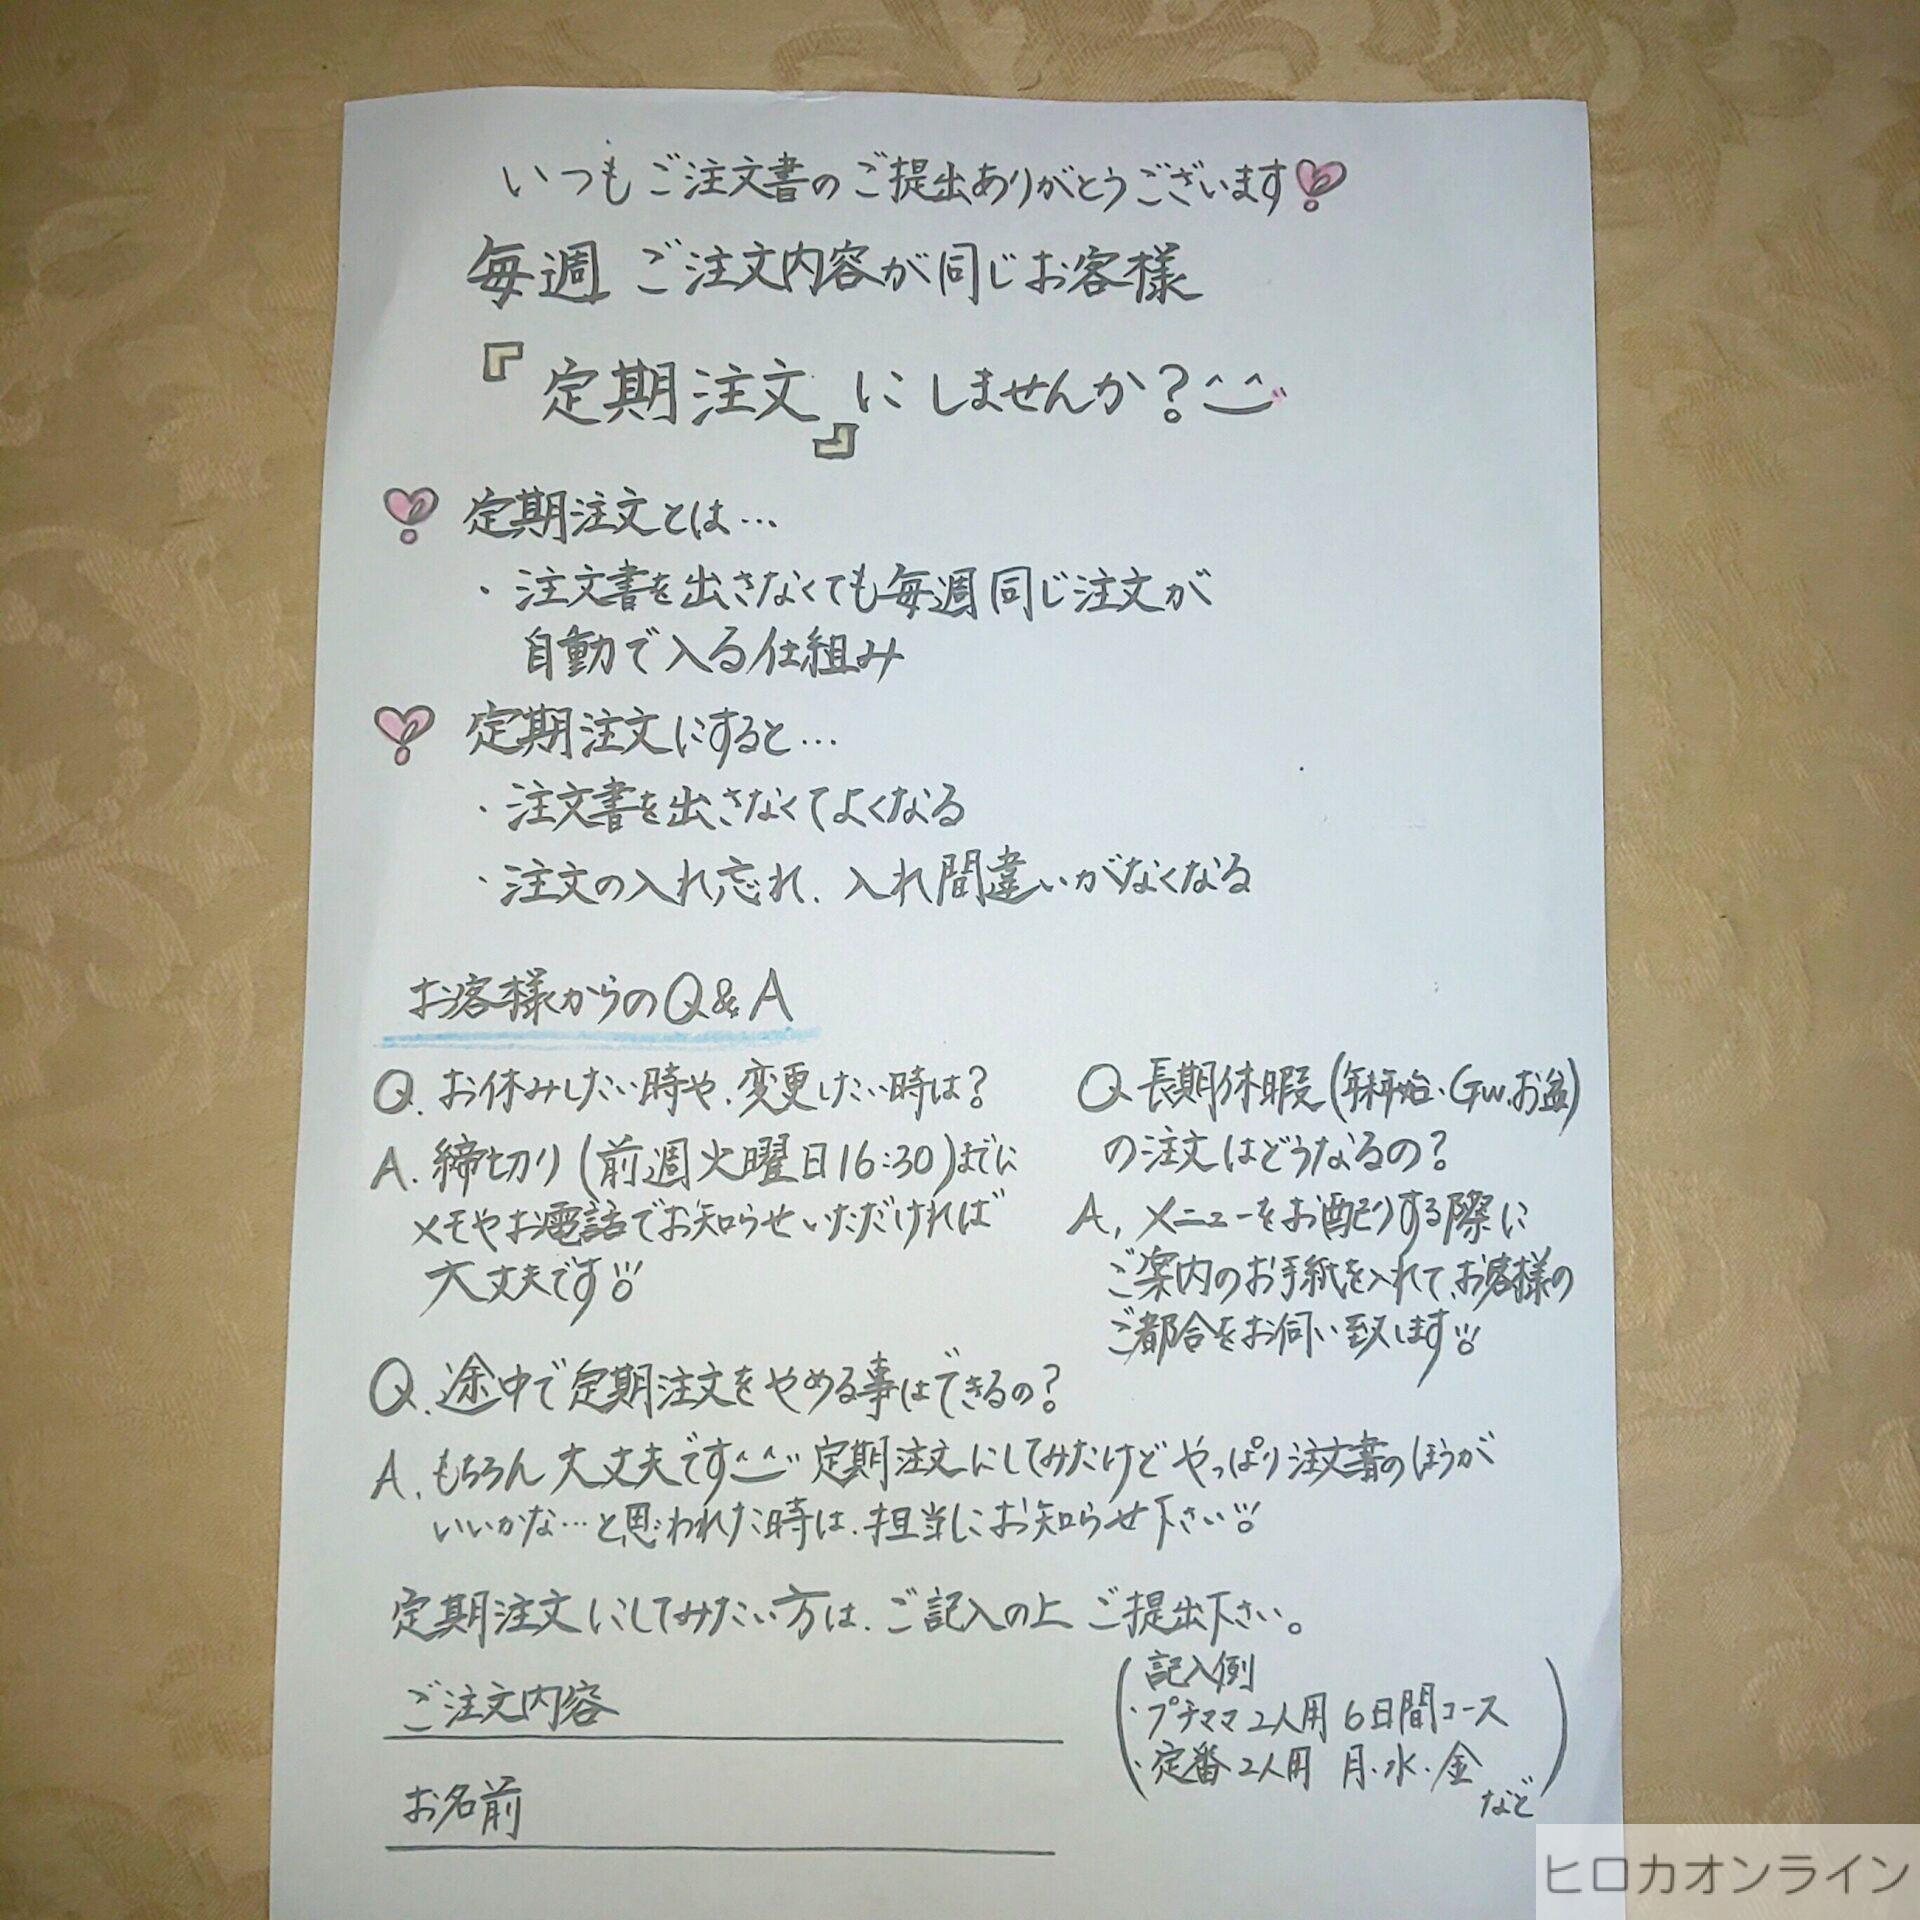 いつもご注文書のご提出ありがとうございます
毎週 ご注文内容が同じお客様
『定期注文』にしませんか？^^
定期注文とは…
・注文書を出さなくても毎週同じ注文が
自動で入る仕組み
定期注文にすると…
・注文書を出さなくてよくなる
・注文の入れ忘れ、入れ間違いがなくなる
お客様からのQ&A
Q.お休みしたい時や、変更したい時は？
A.締切り(前週火曜日16:30)までに
メモやお電話でお知らせいただければ
大丈夫です
Q 長期休暇(年末年始・GW、お盆)
の注文はどうなるの？
A、メニューをお配りする際に
ご案内のお手紙を入れて、お客様の
ご都合をお伺い致します
Q.途中で定期注文をやめる事はできるの？
A.もちろん大丈夫です^^ 定期注文にしてみたけどやっぱり注文書のほうが
いいかな…と思われた時は、担当にお知らせ下さい
定期注文にしてみたい方は、ご記入の上ご提出下さい。
ご注文内容
お名前
(記入例
・プチママ2人用 6日間コース
・定番2人用 月・水・金
など)
ヒロカオンライン